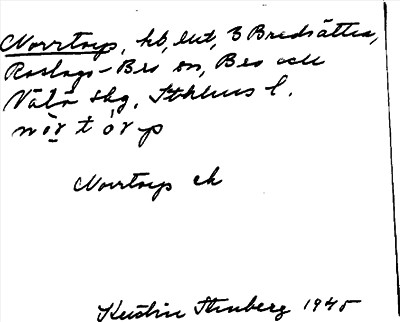 Norrtorp, hb, ent, 3 Bredsätra,
Roslags-Bro sn, Bro och
Vätö skg, Sthlms l.
nòr̥tór̥p
Norrtorp ek
Kerstin Stenberg 1945